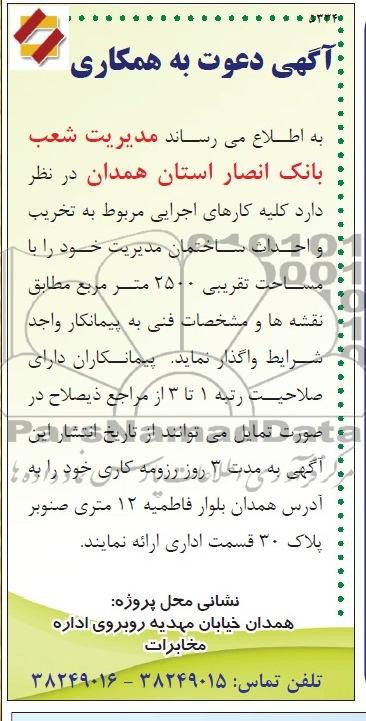 ۵۳۳۴
آگهی دعوت به همکاری
به اطلاع می رساند مدیریت شعب
بانک انصار استان همدان در نظر
دارد کلیه کارهای اجرایی مربوط به تخریب
و احداث ساختمان مدیریت خود را با
مساحت تقریبی ۲۵۰۰ متر مربع مطابق
نقشه ها و مشخصات فنی به پیمانکار واجد
شرایط واگذار نماید. پیمانکاران دارای
صلاحیت رتبه ۱ تا ۳ از مراجع ذیصلاح در
صورت تمایل می توانند از تاریخ انتشار این
آگهی به مدت ۳ روز رزومه کاری خود را به
آدرس همدان بلوار فاطمیه ۱۲ متری صنوبر
پلاک ۳۰ قسمت اداری ارائه نمایند.
نشانی محل پروژه:
همدان خیابان مهدیه روبروی اداره
مخابرات
تلفن تماس: ۳۸۲۴۹۰۱۵ - ۳۸۲۴۹۰۱۶